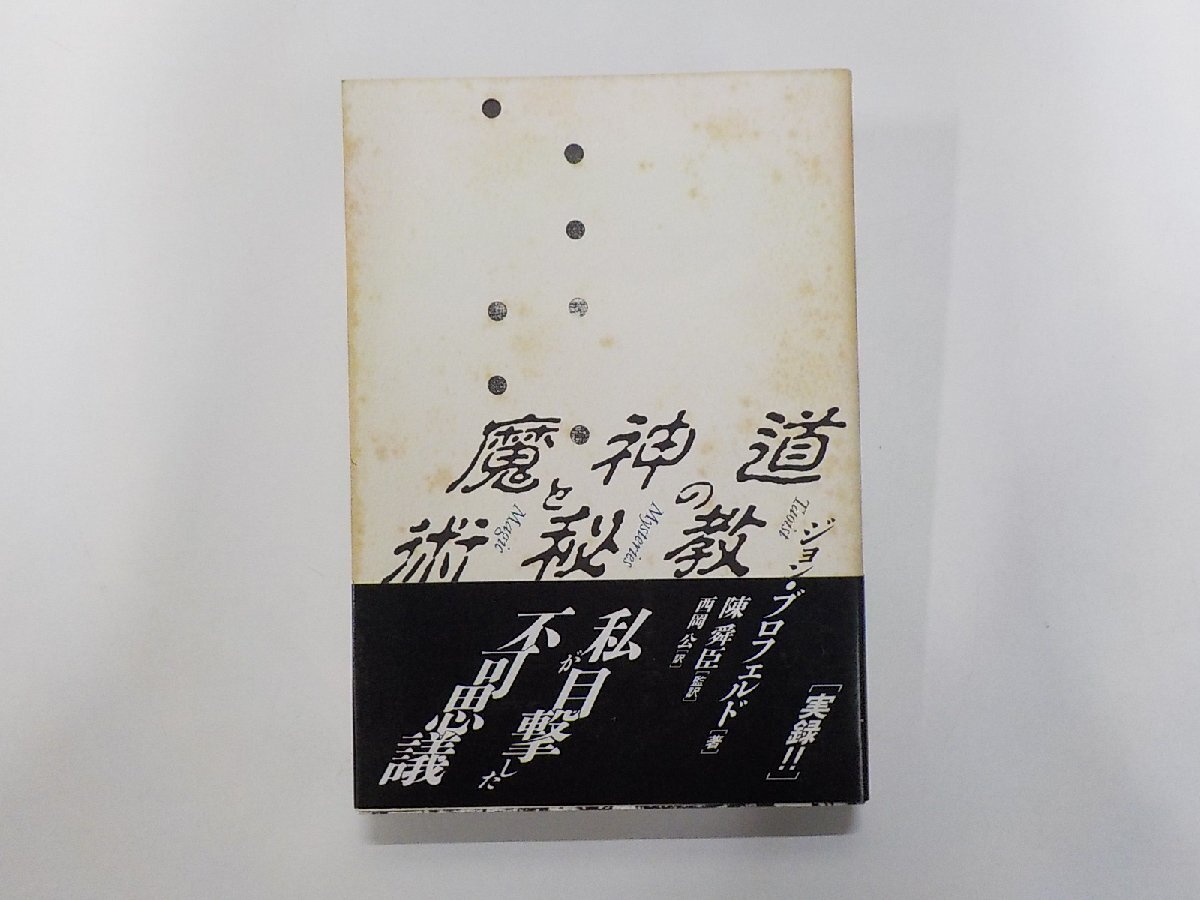 道教の
神秘と
魔術
Taoist
Mysteries
Magic
ジョン・ブロフェルド[著]
陳舜臣[監訳]
西岡公[訳]
[実録!!]
私が目撃した
不可思議